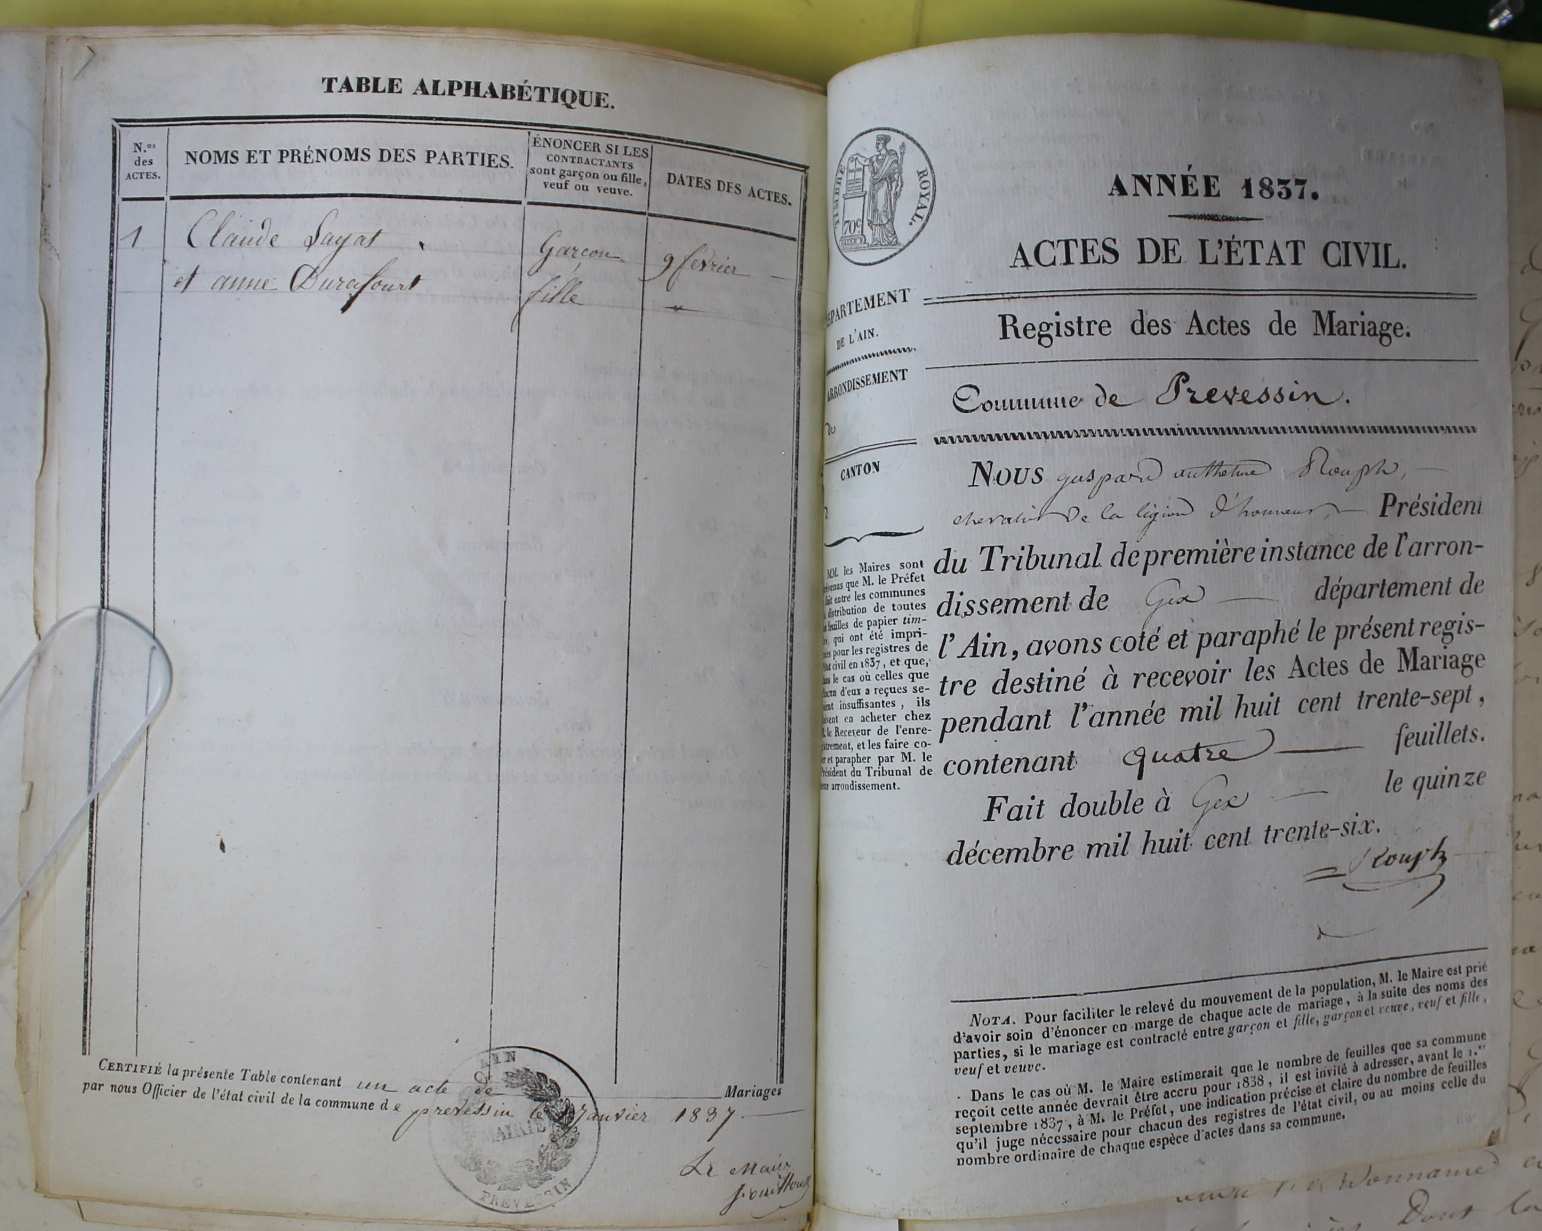 TABLE ALPHABÉTIQUE.
N.os des ACTES.
NOMS ET PRÉNOMS DES PARTIES.
ÉNONCER SI LES
CONTRACTANTS
sont garçon ou fille,
veuf ou veuve.
DATES DES ACTES.
1 Claude Layat Garçon 9 février
et anne Durafourt fille
CERTIFIÉ la présente Table contenant un acte de Mariages
par nous Officier de l'état civil de la commune de prevessin le 1 Janvier 1837
AIN
MAIRIE
PREVESSIN
Le Maire
TIMBRE ROYAL.
70c
ANNÉE 1837.
ACTES DE L'ÉTAT CIVIL.
Registre des Actes de Mariage.
Commune de Prevessin.
ÉPARTEMENT
DE L'AIN.
ARRONDISSEMENT
CANTON
MM. les Maires sont
que M. le Préfet
entre les communes
distribution de toutes
feuilles de papier tim-
qui ont été impri-
pour les registres de
civil en 1837, et que,
le cas où celles que
d'eux a reçues se-
insuffisantes, ils
en acheter chez
le Receveur de l'enre-
et les faire co-
et parapher par M. le
Président du Tribunal de
arrondissement.
NOUS gaspard Rouph,
chevalier de la légion d'honneur, Président
du Tribunal de première instance de l'arron-
dissement de Gex département de
l'Ain, avons coté et paraphé le présent regis-
tre destiné à recevoir les Actes de Mariage
pendant l'année mil huit cent trente-sept,
contenant quatre feuillets.
Fait double à Gex le quinze
décembre mil huit cent trente-six.
Rouph
NOTA. Pour faciliter le relevé du mouvement de la population, M. le Maire est prié
d'avoir soin d'énoncer en marge de chaque acte de mariage, à la suite des noms des
parties, si le mariage est contracté entre garçon et fille, garçon et veuve, veuf et fille,
veuf et veuve.
Dans le cas où M. le Maire estimerait que le nombre de feuilles que sa commune
reçoit cette année devrait être accru pour 1838, il est invité à adresser, avant le 1.er
septembre 1837, à M. le Préfet, une indication précise et claire du nombre de feuilles
qu'il juge nécessaire pour chacun des registres de l'état civil, ou au moins celle du
nombre ordinaire de chaque espèce d'actes dans sa commune.